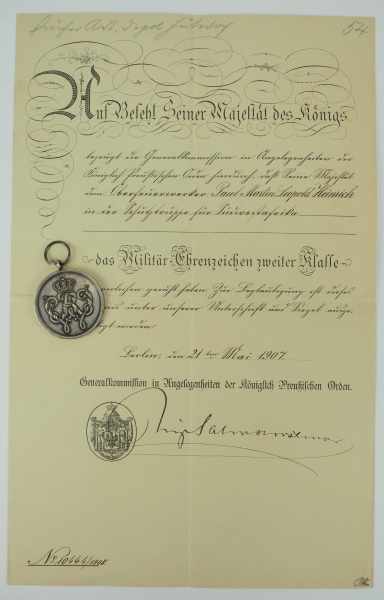 früher Art. Depot Güterbhf
54
Auf Befehl Seiner Majestät des Königs
bezeugt die Generalkommission in Angelegenheiten der
Königlich Preußischen Orden hierdurch, daß Seine Majestät
dem Oberfeuerwerker Paul Martin Leopold Heinrich
in der Schutztruppe für Südwestafrika
das Militär-Ehrenzeichen zweiter Klasse
verliehen geruht haben. Zur Beglaubigung ist dieses
unter unserer Unterschrift und Siegel ausge-
fertigt worden.
Berlin, den 21ten Mai 1907.
Generalkommission in Angelegenheiten der Königlich Preußischen Orden.